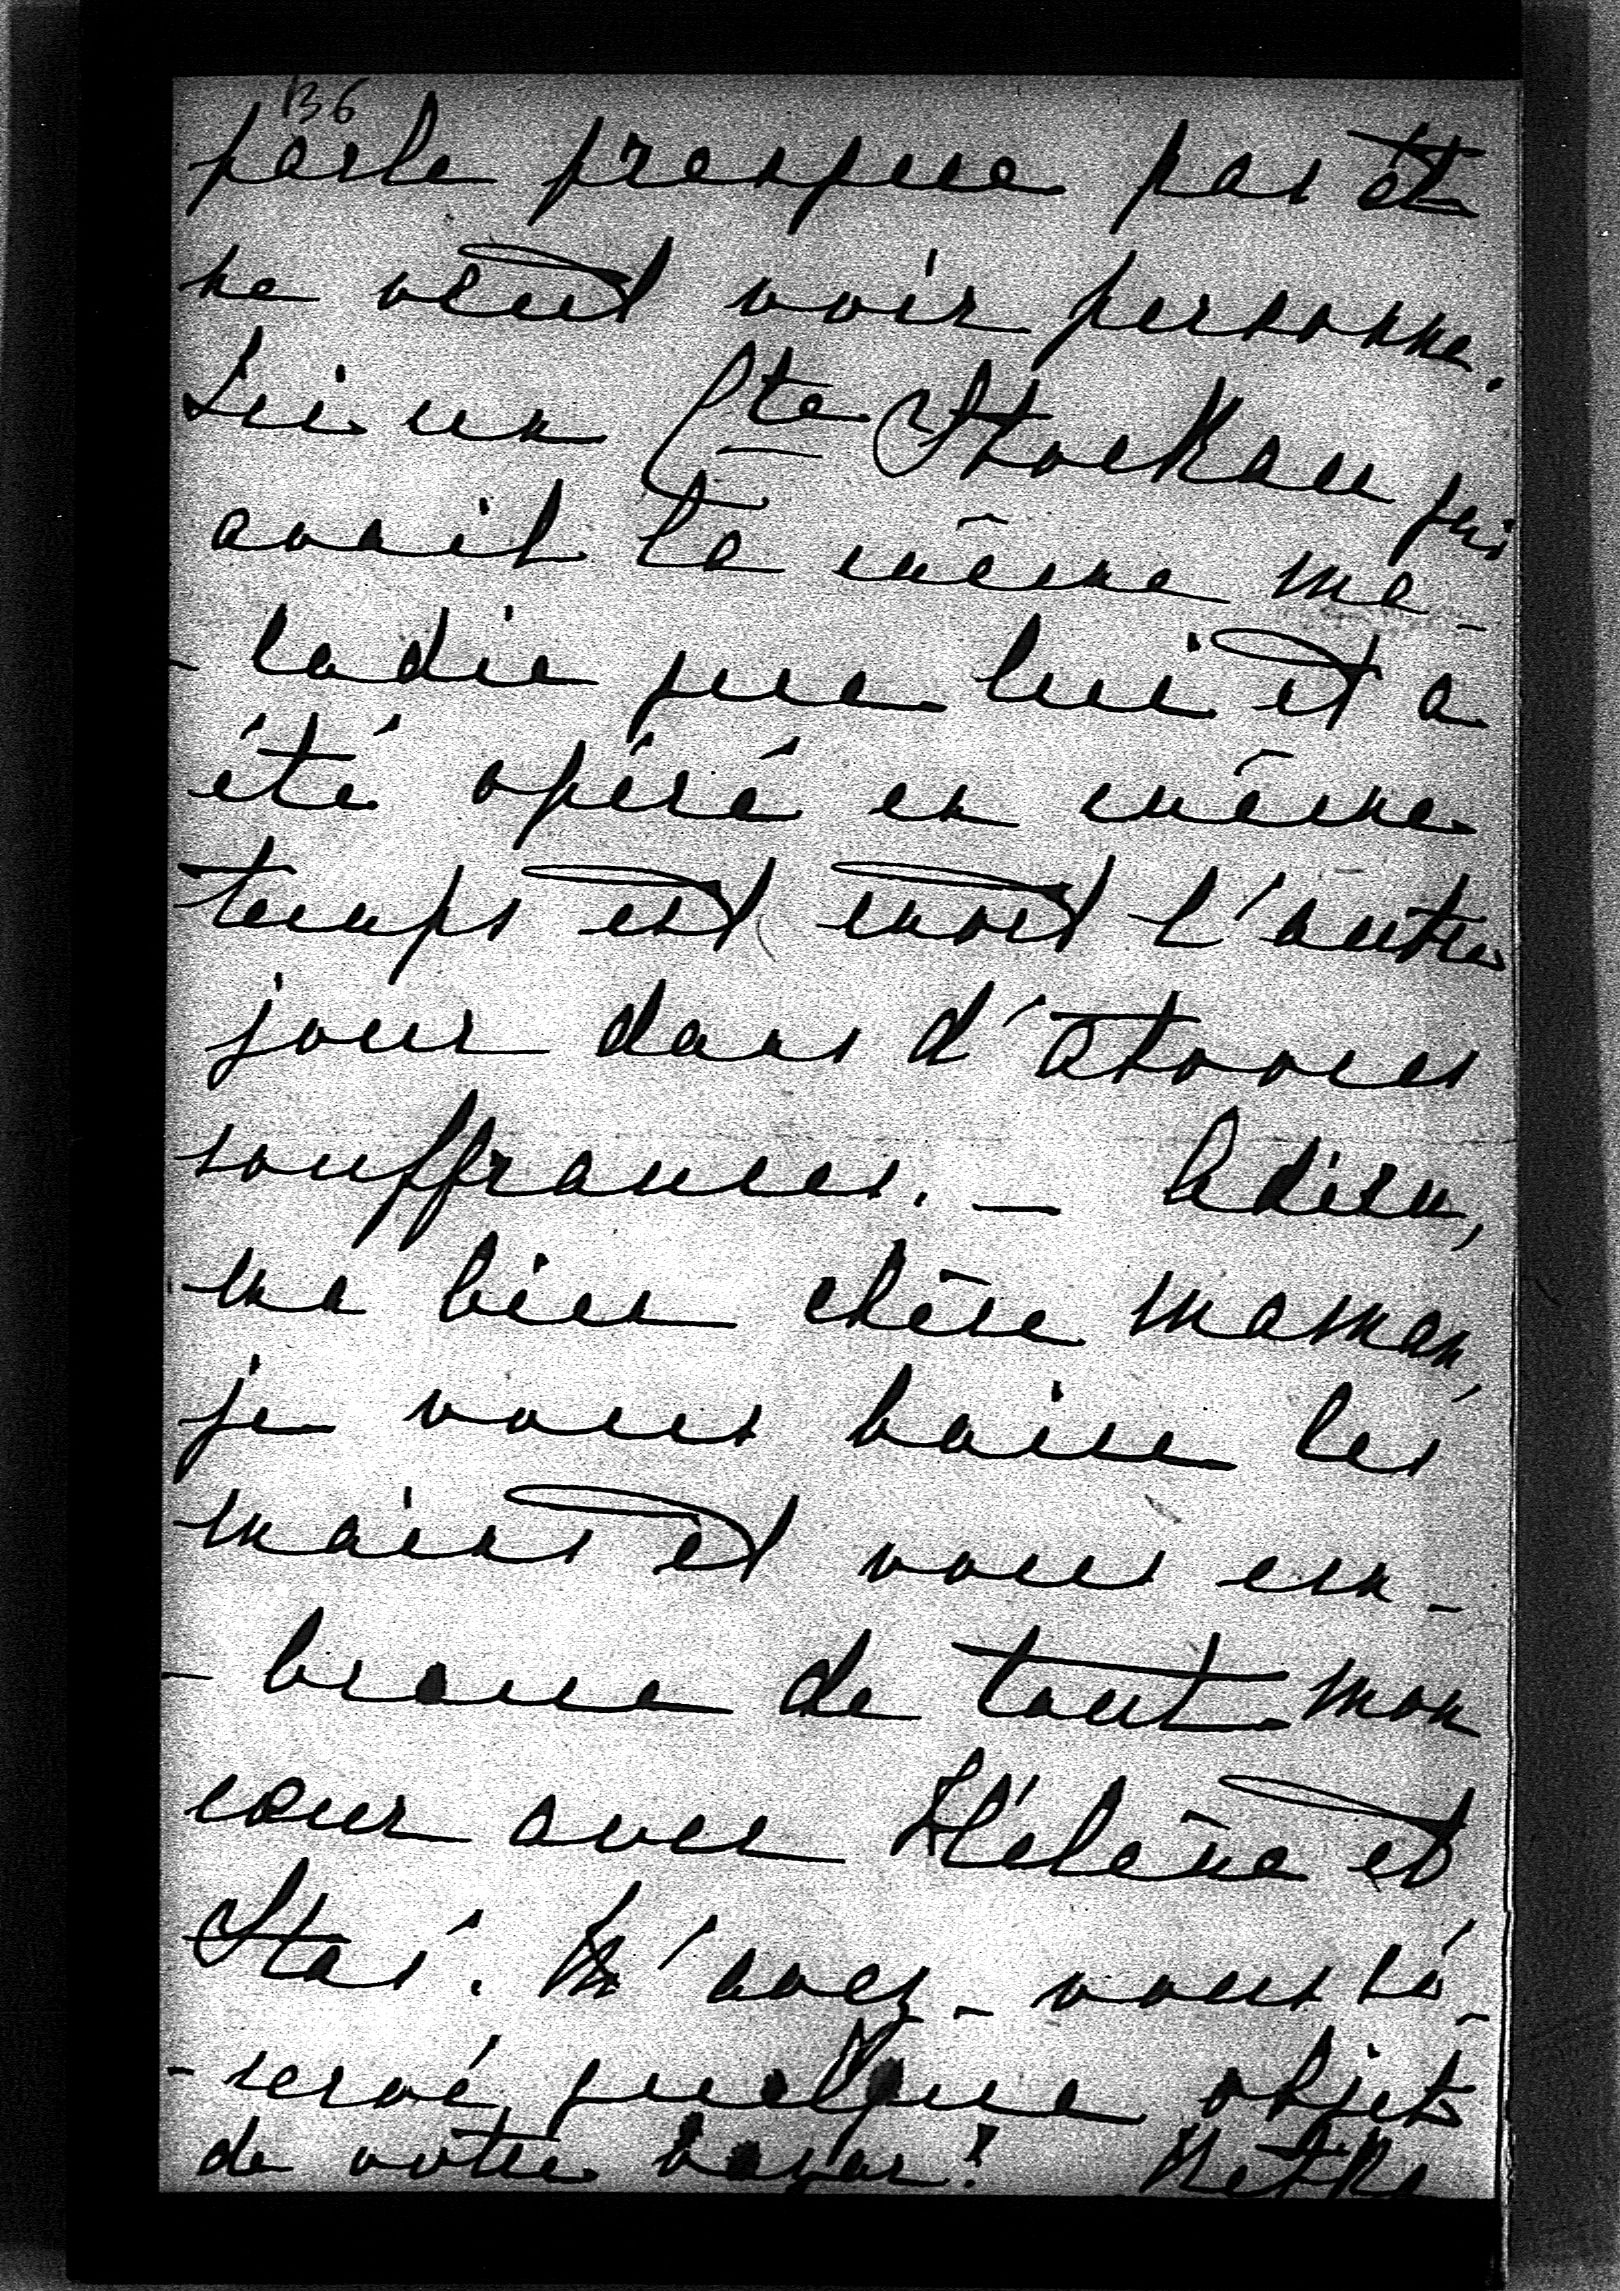 136
parle presque pas et
ne veut voir personne.
Ici un Cte Stockau qui
avait la même ma-
-ladie que lui et a
été opéré en même
temps est mort l'autre
jour dans d'atroces
souffrances. — Adieu,
ma bien chère maman,
je vous baise les
mains et vous em-
-brasse de tout mon
cœur avec Hélène et
Stas'. M'avez-vous ré-
-servé quelque objet
de votre bazar?